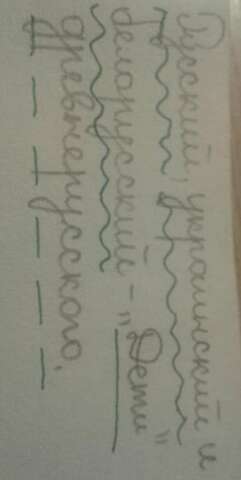 Русский, украинский и
белорусский – „Дети"
древнерусского.